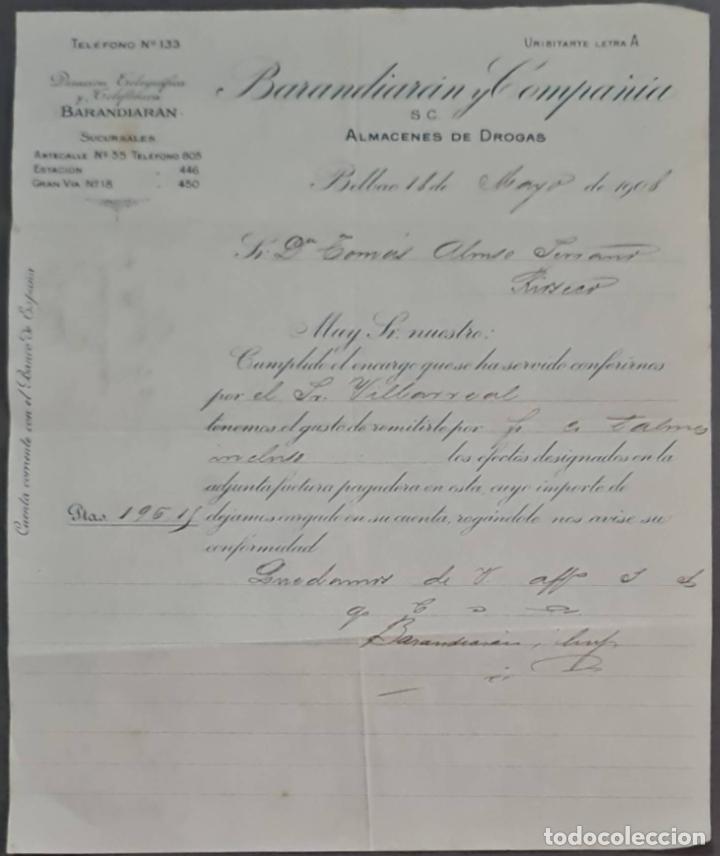 TELÉFONO Nº 133
URIBITARTE LETRA A
Dirección Telegráfica
y Telefónica
BARANDIARÁN
SUCURSALES
ARTECALLE Nº 35 TELÉFONO 805
ESTACION " 446
GRAN VIA Nº 18 " 450
Barandiarán y Compañia
S C.
ALMACENES DE DROGAS
Bilbao 18 de Mayo de 1908
Sr. Dn Tomás Alonso Serrano
Rioseco
Muy Sr. nuestro:
Cumplido el encargo que se ha servido conferirnos
por el Sr. Villarreal
tenemos el gusto de remitirle por
incluso los efectos designados en la
adjunta factura pagadera en esta, cuyo importe de
Ptas. 196.15 dejamos cargado en su cuenta, rogándole nos avise su
conformidad
Quedamos de V aff S S
q b s m
Barandiarán
Cuenta corriente con el Banco de España
todocoleccion